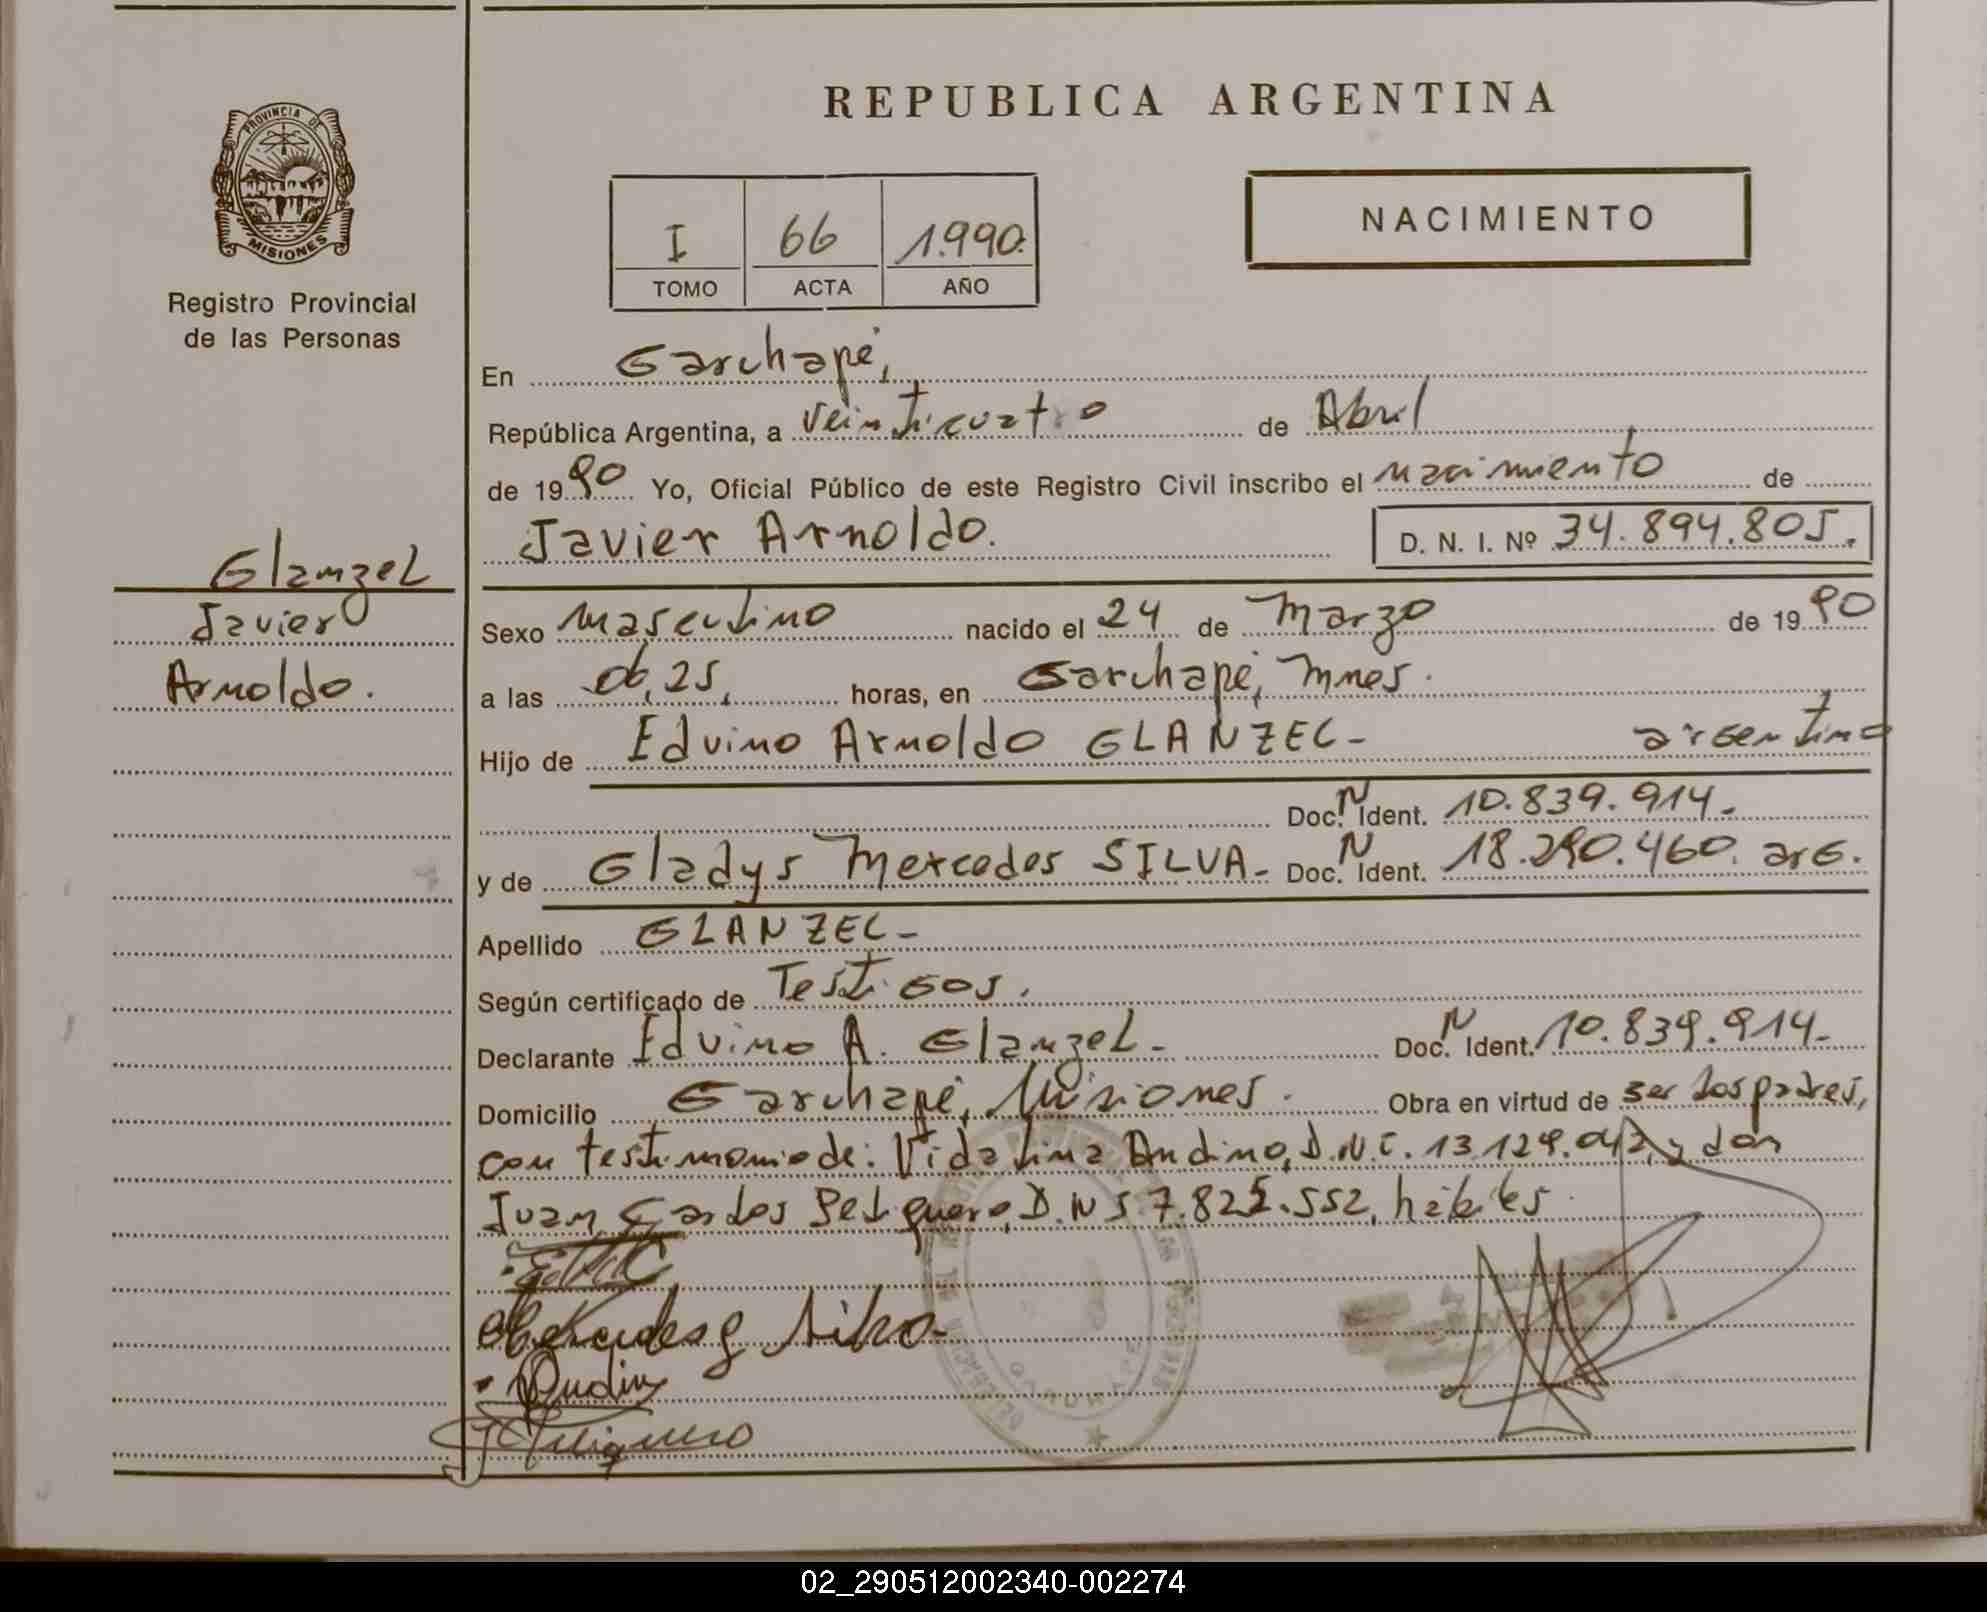 REPUBLICA ARGENTINA
PROVINCIA DE
MISIONES
Registro Provincial
de las Personas
NACIMIENTO
I 66 1.990.
TOMO ACTA AÑO
En Garuhapé,
República Argentina, a veinticuatro de Abril
de 1990 Yo, Oficial Público de este Registro Civil inscribo el nacimiento de
Javier Arnoldo. D. N. I. Nº 34.894.805.
Glanzel
Javier
Arnoldo.
Sexo masculino nacido el 24 de Marzo de 1990
a las 06,25, horas, en Garuhapé, Mnes.
Hijo de Edvino Arnoldo GLANZEL- argentino
Doc. N Ident. 10.839.914-
y de Gladys Mercedes SILVA- Doc. N Ident. 18.290.460. arg.
Apellido GLANZEL-
Según certificado de Testigos.
Declarante Edvino A. Glanzel- Doc. N Ident. 10.839.914-
Domicilio Garuhapé, Misiones. Obra en virtud de ser los padres,
con testimonio de: Vidalina Andino, D.N.I. 13.129. y don
Juan Carlos Pelquero, D.N I 7.825.552, hábiles
Mercedes g Silva-
Andino
02_290512002340-002274